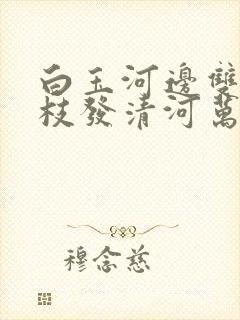 白玉河邊雙
枝發清河萬
穆念慈